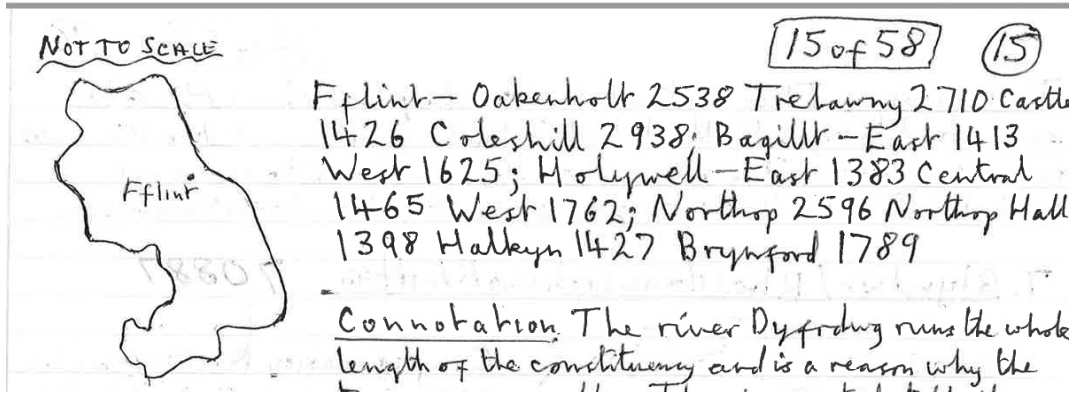 NOT TO SCALE
15 of 58 15
Fflint
Fflint - Oakenholt 2538 Trelawny 2710 Castle
1426 Coleshill 2938; Bagillt - East 1413
West 1625; Holywell - East 1383 Central
1465 West 1762; Northop 2596 Northop Hall
1398 Halkyn 1427 Brynford 1789
Connotation. The river Dyfrdwy runs the whole
length of the constituency and is a reason why the